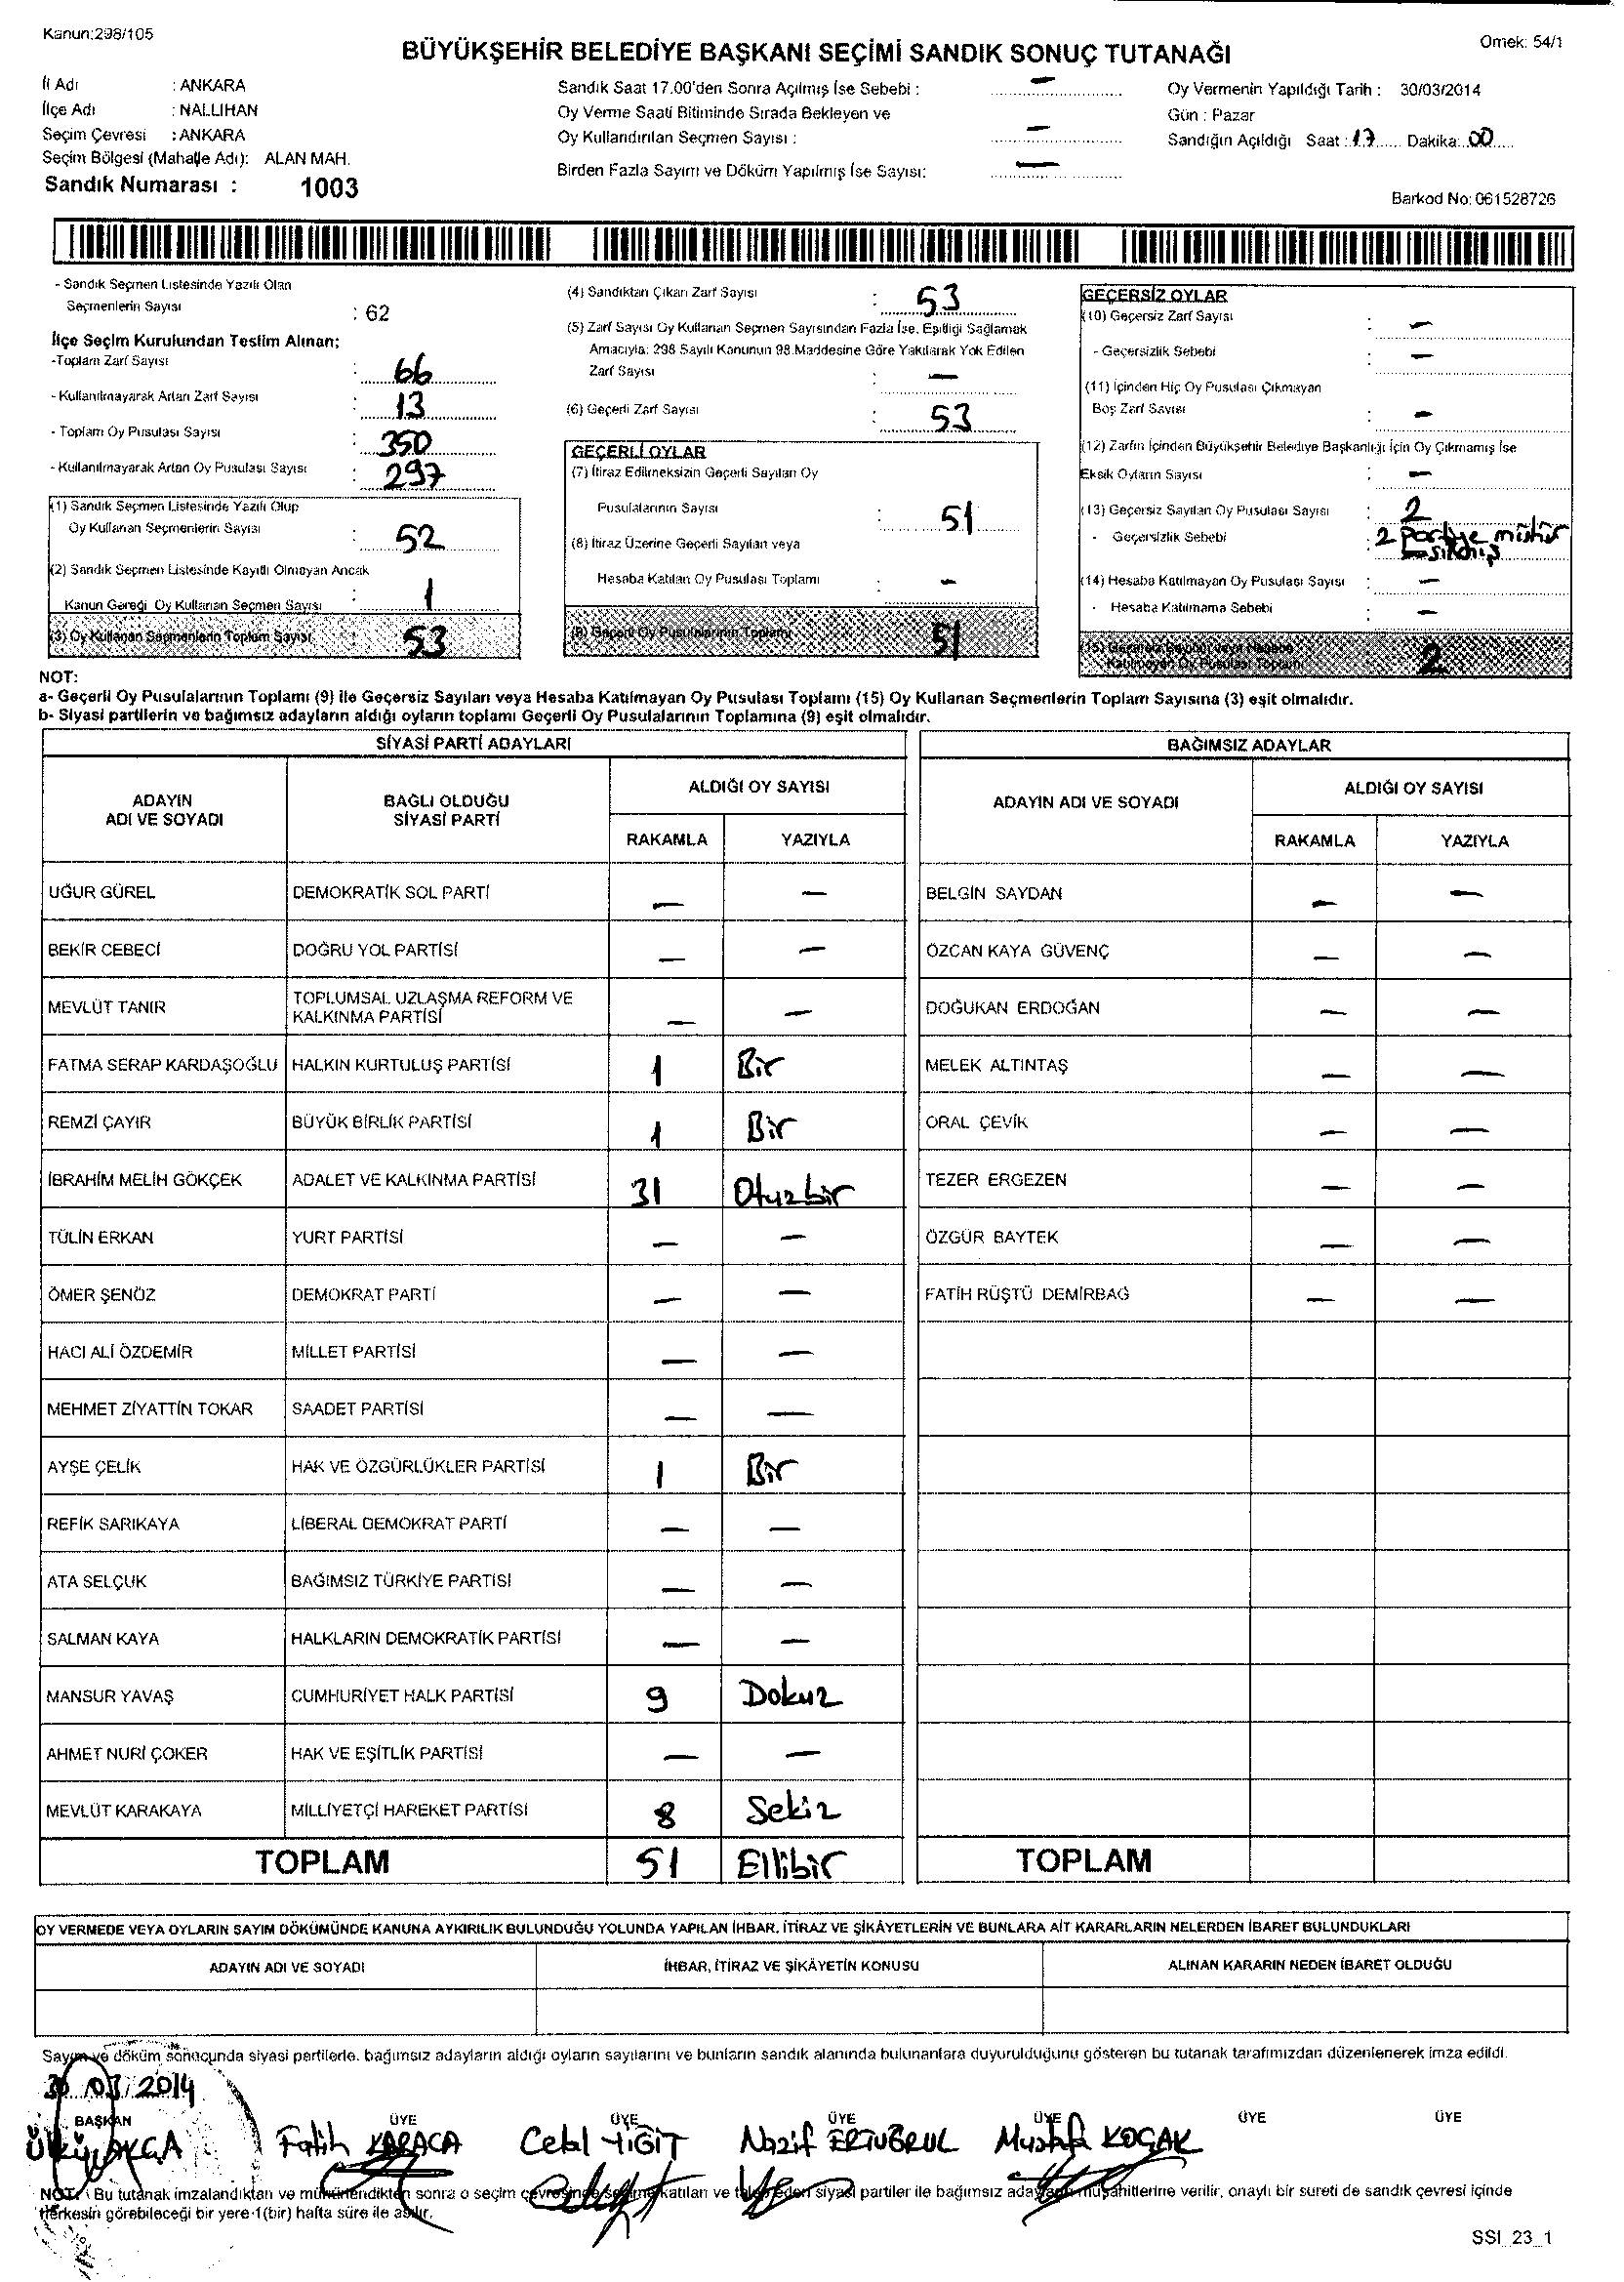 Kanun:298/105
BÜYÜKŞEHİR BELEDİYE BAŞKANI SEÇİMİ SANDIK SONUÇ TUTANAĞI
Örnek: 54/1
İl Adı : ANKARA
İlçe Adı : NALLIHAN
Seçim Çevresi : ANKARA
Seçim Bölgesi (Mahalle Adı): ALAN MAH.
Sandık Numarası : 1003
Sandık Saat 17.00'den Sonra Açılmış İse Sebebi : –
Oy Verme Saati Bitiminde Sırada Bekleyen ve
Oy Kullandırılan Seçmen Sayısı : –
Birden Fazla Sayım ve Döküm Yapılmış İse Sayısı: –
Oy Vermenin Yapıldığı Tarih : 30/03/2014
Gün : Pazar
Sandığın Açıldığı Saat : 17 Dakika: 00
Barkod No: 061528726
- Sandık Seçmen Listesinde Yazılı Olan
Seçmenlerin Sayısı : 62
İlçe Seçim Kurulundan Teslim Alınan:
-Toplam Zarf Sayısı : 66
- Kullanılmayarak Artan Zarf Sayısı : 13
- Toplam Oy Pusulası Sayısı : 350
- Kullanılmayarak Artan Oy Pusulası Sayısı : 297
(1) Sandık Seçmen Listesinde Yazılı Olup
Oy Kullanan Seçmenlerin Sayısı : 52
(2) Sandık Seçmen Listesinde Kayıtlı Olmayan Ancak
Kanun Gereği Oy Kullanan Seçmen Sayısı : 1
(3) Oy Kullanan Seçmenlerin Toplam Sayısı : 53
(4) Sandıktan Çıkan Zarf Sayısı : 53
(5) Zarf Sayısı Oy Kullanan Seçmen Sayısından Fazla İse, Eşitliği Sağlamak
Amacıyla: 298 Sayılı Kanunun 98.Maddesine Göre Yakılarak Yok Edilen
Zarf Sayısı : –
(6) Geçerli Zarf Sayısı : 53
GEÇERLİ OYLAR
(7) İtiraz Edilmeksizin Geçerli Sayılan Oy
Pusulalarının Sayısı : 51
(8) İtiraz Üzerine Geçerli Sayılan veya
Hesaba Katılan Oy Pusulası Toplamı : –
(9) Geçerli Oy Pusulalarının Toplamı 51
GEÇERSİZ OYLAR
(10) Geçersiz Zarf Sayısı : –
- Geçersizlik Sebebi : –
(11) İçinden Hiç Oy Pusulası Çıkmayan
Boş Zarf Sayısı : –
(12) Zarfın İçinden Büyükşehir Belediye Başkanlığı İçin Oy Çıkmamış İse
Eksik Oyların Sayısı : –
(13) Geçersiz Sayılan Oy Pusulası Sayısı : 2
- Geçersizlik Sebebi : 2 Partiye mühür
(14) Hesaba Katılmayan Oy Pusulası Sayısı : –
- Hesaba Katılmama Sebebi : –
(15) Geçersiz Sayılan veya Hesaba
Katılmayan Oy Pusulası Toplamı 2
NOT:
a- Geçerli Oy Pusulalarının Toplamı (9) ile Geçersiz Sayılan veya Hesaba Katılmayan Oy Pusulası Toplamı (15) Oy Kullanan Seçmenlerin Toplam Sayısına (3) eşit olmalıdır.
b- Siyasi partilerin ve bağımsız adayların aldığı oyların toplamı Geçerli Oy Pusulalarının Toplamına (9) eşit olmalıdır.
SİYASİ PARTİ ADAYLARI
ADAYIN ADI VE SOYADI
BAĞLI OLDUĞU SİYASİ PARTİ
ALDIĞI OY SAYISI
RAKAMLA YAZIYLA
UĞUR GÜREL DEMOKRATİK SOL PARTİ – –
BEKİR CEBECİ DOĞRU YOL PARTİSİ – –
MEVLÜT TANIR TOPLUMSAL UZLAŞMA REFORM VE KALKINMA PARTİSİ – –
FATMA SERAP KARDAŞOĞLU HALKIN KURTULUŞ PARTİSİ 1 Bir
REMZİ ÇAYIR BÜYÜK BİRLİK PARTİSİ 1 Bir
İBRAHİM MELİH GÖKÇEK ADALET VE KALKINMA PARTİSİ 31 Otuzbir
TÜLİN ERKAN YURT PARTİSİ – –
ÖMER ŞENÖZ DEMOKRAT PARTİ – –
HACI ALİ ÖZDEMİR MİLLET PARTİSİ – –
MEHMET ZİYATTİN TOKAR SAADET PARTİSİ – –
AYŞE ÇELİK HAK VE ÖZGÜRLÜKLER PARTİSİ 1 Bir
REFİK SARIKAYA LİBERAL DEMOKRAT PARTİ – –
ATA SELÇUK BAĞIMSIZ TÜRKİYE PARTİSİ – –
SALMAN KAYA HALKLARIN DEMOKRATİK PARTİSİ – –
MANSUR YAVAŞ CUMHURİYET HALK PARTİSİ 9 Dokuz
AHMET NURİ ÇOKER HAK VE EŞİTLİK PARTİSİ – –
MEVLÜT KARAKAYA MİLLİYETÇİ HAREKET PARTİSİ 8 Sekiz
TOPLAM 51 Ellibir
BAĞIMSIZ ADAYLAR
ADAYIN ADI VE SOYADI
ALDIĞI OY SAYISI
RAKAMLA YAZIYLA
BELGİN SAYDAN – –
ÖZCAN KAYA GÜVENÇ – –
DOĞUKAN ERDOĞAN – –
MELEK ALTINTAŞ – –
ORAL ÇEVİK – –
TEZER ERGEZEN – –
ÖZGÜR BAYTEK – –
FATİH RÜŞTÜ DEMİRBAĞ – –
TOPLAM
OY VERMEDE VEYA OYLARIN SAYIM DÖKÜMÜNDE KANUNA AYKIRILIK BULUNDUĞU YOLUNDA YAPILAN İHBAR, İTİRAZ VE ŞİKÂYETLERİN VE BUNLARA AİT KARARLARIN NELERDEN İBARET BULUNDUKLARI
ADAYIN ADI VE SOYADI
İHBAR, İTİRAZ VE ŞİKÂYETİN KONUSU
ALINAN KARARIN NEDEN İBARET OLDUĞU
Sayım ve döküm sonucunda siyasi partilerle, bağımsız adayların aldığı oyların sayılarını ve bunların sandık alanında bulunanlara duyurulduğunu gösteren bu tutanak tarafımızdan düzenlenerek imza edildi.
30/03/2014
BAŞKAN ÜYE ÜYE ÜYE ÜYE ÜYE ÜYE
Ülkü AKÇA Fatih KARACA Celal YİĞİT Nazif ERTUĞRUL Mustafa KOÇAK
NOT: Bu tutanak imzalandıktan ve mühürlendikten sonra o seçim çevresinde seçime katılan ve talep eden siyasi partiler ile bağımsız adayların müşahitlerine verilir, onaylı bir sureti de sandık çevresi içinde
herkesin görebileceği bir yere 1(bir) hafta süre ile asılır.
SSI_23_1